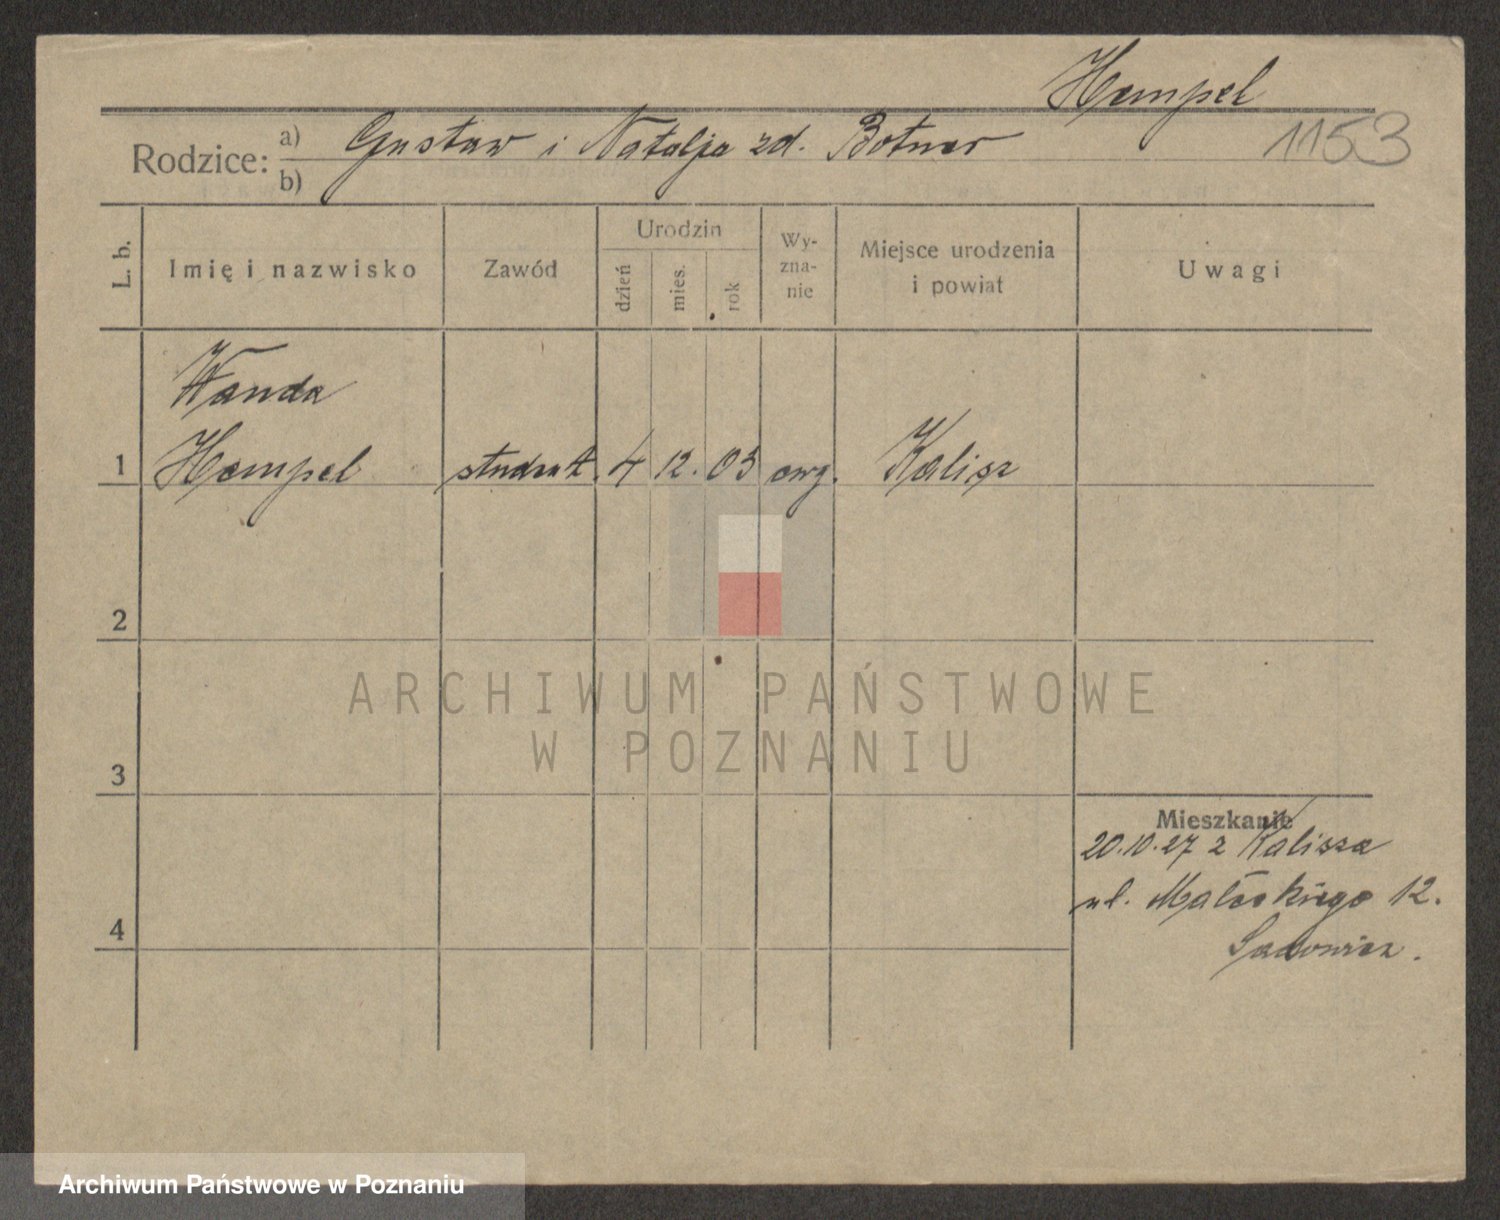 Hempel
1153
Rodzice: a) Gustaw i Natalja zd. Botner
b)
L. b.
Imię i nazwisko
Zawód
Urodzin
dzień
mies.
rok
Wy-
zna-
nie
Miejsce urodzenia
i powiat
Uwagi
Wanda
1 Hempel student. 4 12. 03 ewg. Kalisz
2
3
4
Mieszkanie
20.10.27 z Kalisza
ul. Małeckiego 12.
ARCHIWUM PAŃSTWOWE
W POZNANIU
Archiwum Państwowe w Poznaniu